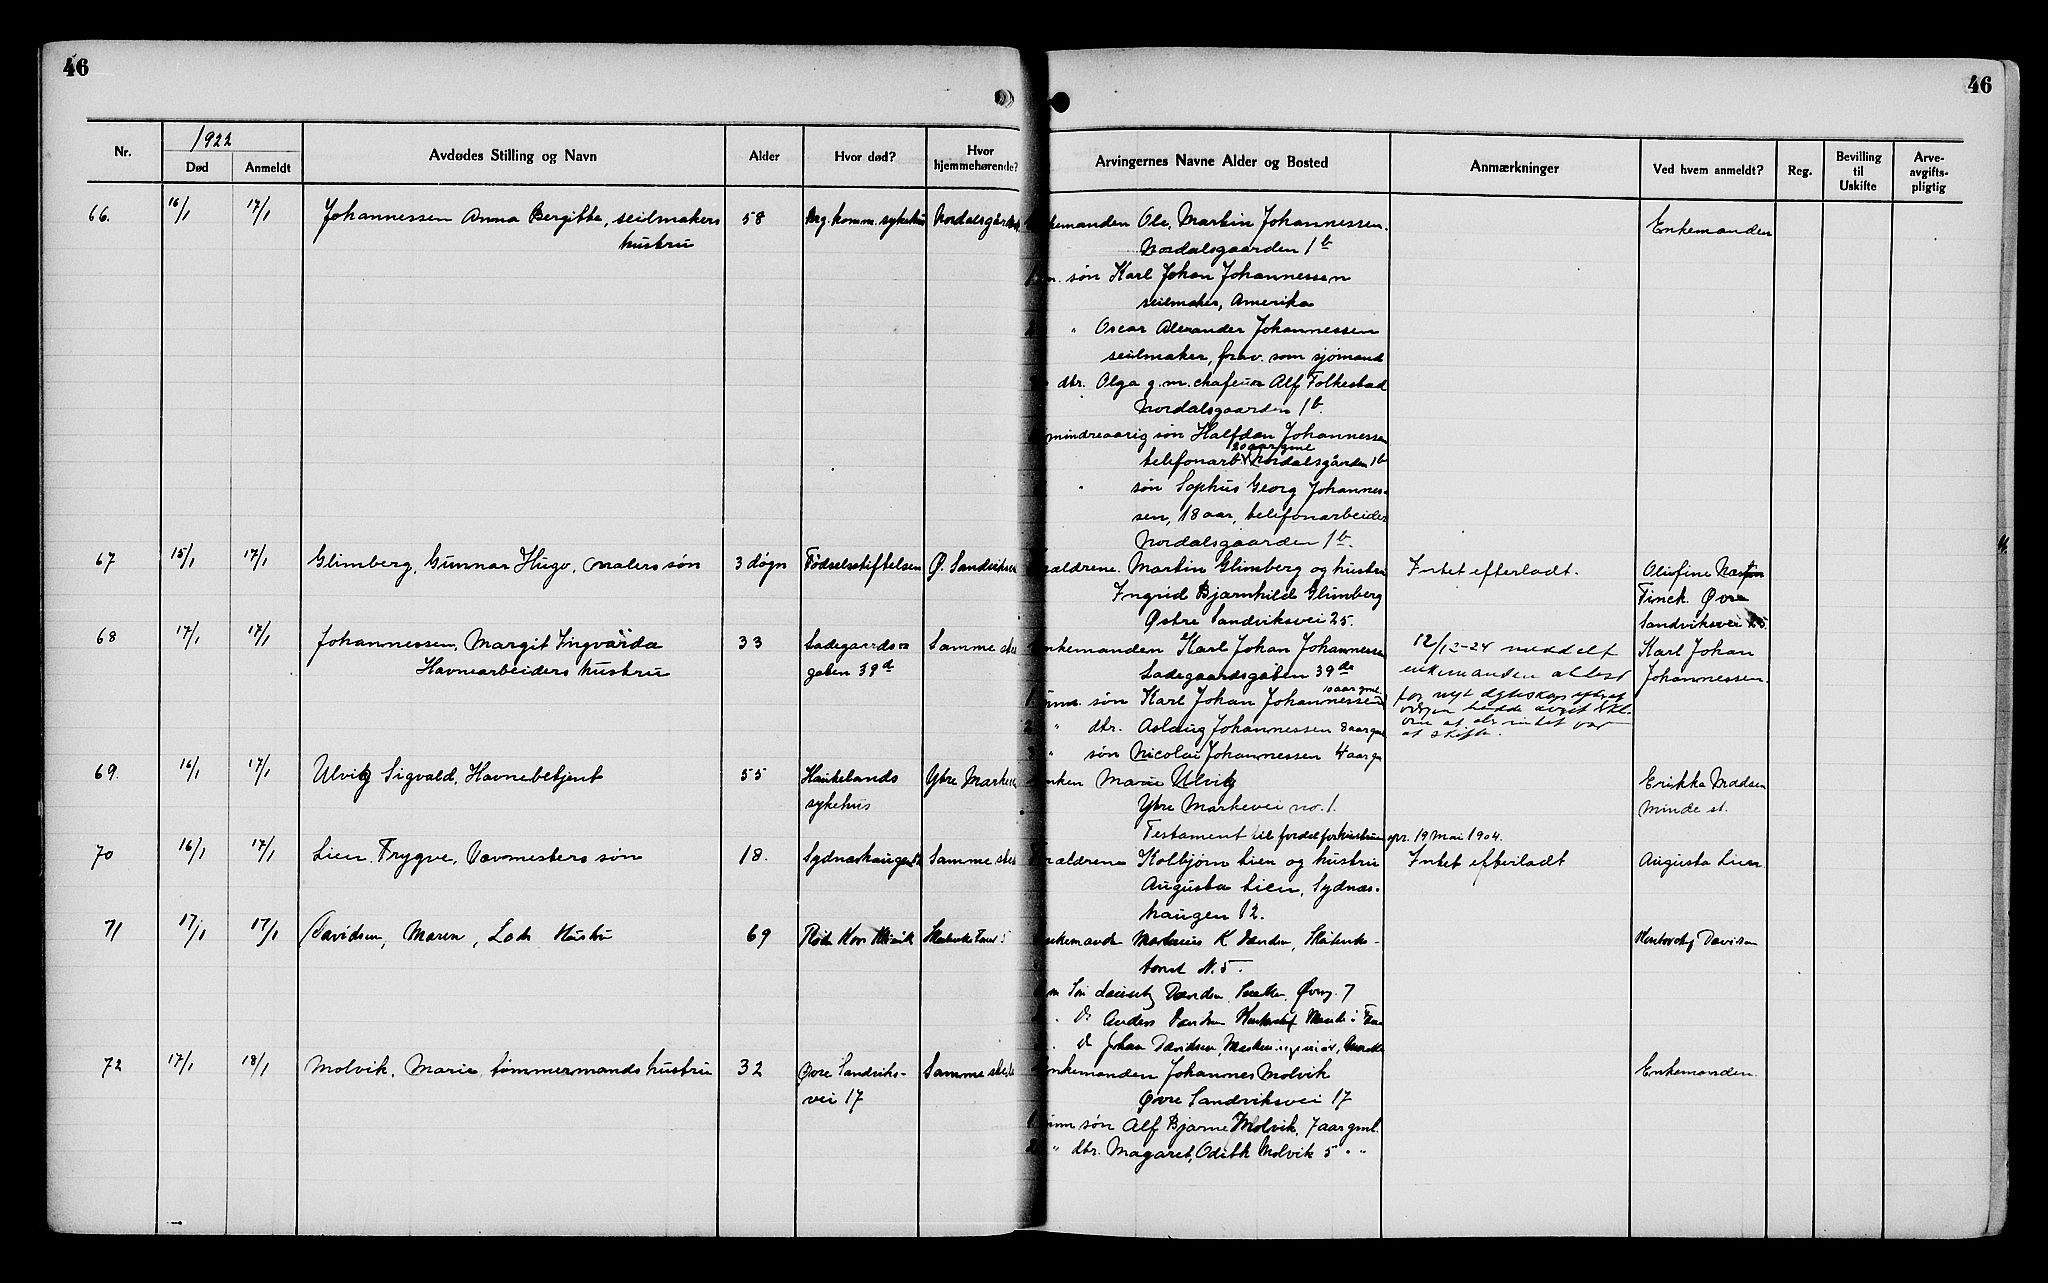 46
46
1922
Nr.
Død
Anmeldt
Avdødes Stilling og Navn
Alder
Hvor død?
Hvor hjemmehørende?
Arvingernes Navne Alder og Bosted
Anmærkninger
Ved hvem anmeldt?
Reg.
Bevilling til Uskifte
Arve-avgifts-pligtig
66. 16/1 17/1 Johannessen Anna Bergitte, seilmakers 58 komm. sykehus Enkemanden Ole, Martin Johannessen. Enkemanden
hustru Nordalsgaarden 1b
søn Karl Johan Johannessen
seilmaker, Amerika
" Oscar Alexander Johannessen
seilmaker, frav. som sjømand
dtr. Olga g.m. chafeur Alf Folkestad
Nordalsgaarden 1b.
mindreaarig søn Halfdan Johannessen
20 aar gml
telefonarb. Nordalsgården 1b
" søn Sophus Georg Johannes-
sen, 18 aar, telefonarbeider
Nordalsgaarden 1b.
67 15/1 17/1 Glimberg, Gunnar Hugo, malers søn 3 døgn Fødselsstiftelsen Ø. Sandviksvei Forældrene Martin Glimberg og hustru Intet efterladt. Oliefine
Ingrid Bjarnhild Glimberg Finck. Øvre
Østre Sandviksvei 25. Sandviksvei
68 17/1 17/1 Johannessen, Margit Ingvarda 33 Ladegaards- Samme sted Enkemanden Karl Johan Johannessen 12/12-24 meddelt Karl Johan
Havnearbeiders hustru gaten 39d Ladegaardsgaten 39d enkemanden attest Johannessen.
10 aar gml.
1. umm. søn Karl Johan Johannessen for nyt
2 " dtr. Aslaug Johannessen 8 aar gml
at skifte.
3 " søn Nicolai Johannessen 4 aar gm
69. 16/1 17/1 Ulvik Sigvald, Havnebetjent 55 Haukelands Ytre Markevei Enken Marie Ulvik Erikka Madsen
sykehus Ytre Markevei no. 1. Minde st.
Testament til fordel for hustruen opr. 19 Mai 1904.
70 16/1 17/1 Lien. Trygve, Vævmesters søn 18. Sydneshaugen 12 Samme sted Forældrene Kolbjørn Lien og hustru Intet efterladt Augusta Lien
Augusta Lien, Sydnæs-
haugen 12.
71 17/1 17/1 Davidsen, Maren, Lods Hustru 69 Røde Kors Klinik Enkemand K.
N. 5.
Søn 7
Do Anders
Do Johan Davidsen, Maskiningeniør,
72 17/1 18/1 Molvik, Marie tømmermands hustru 32 Øvre Sandviks- Samme sted Enkemanden Johannes Molvik Enkemanden.
vei 17 Øvre Sandviksvei 17
1. umm søn Alf Bjarne Molvik, 7 aar gml.
2. " dtr. Magaret, Odith Molvik 5 " "